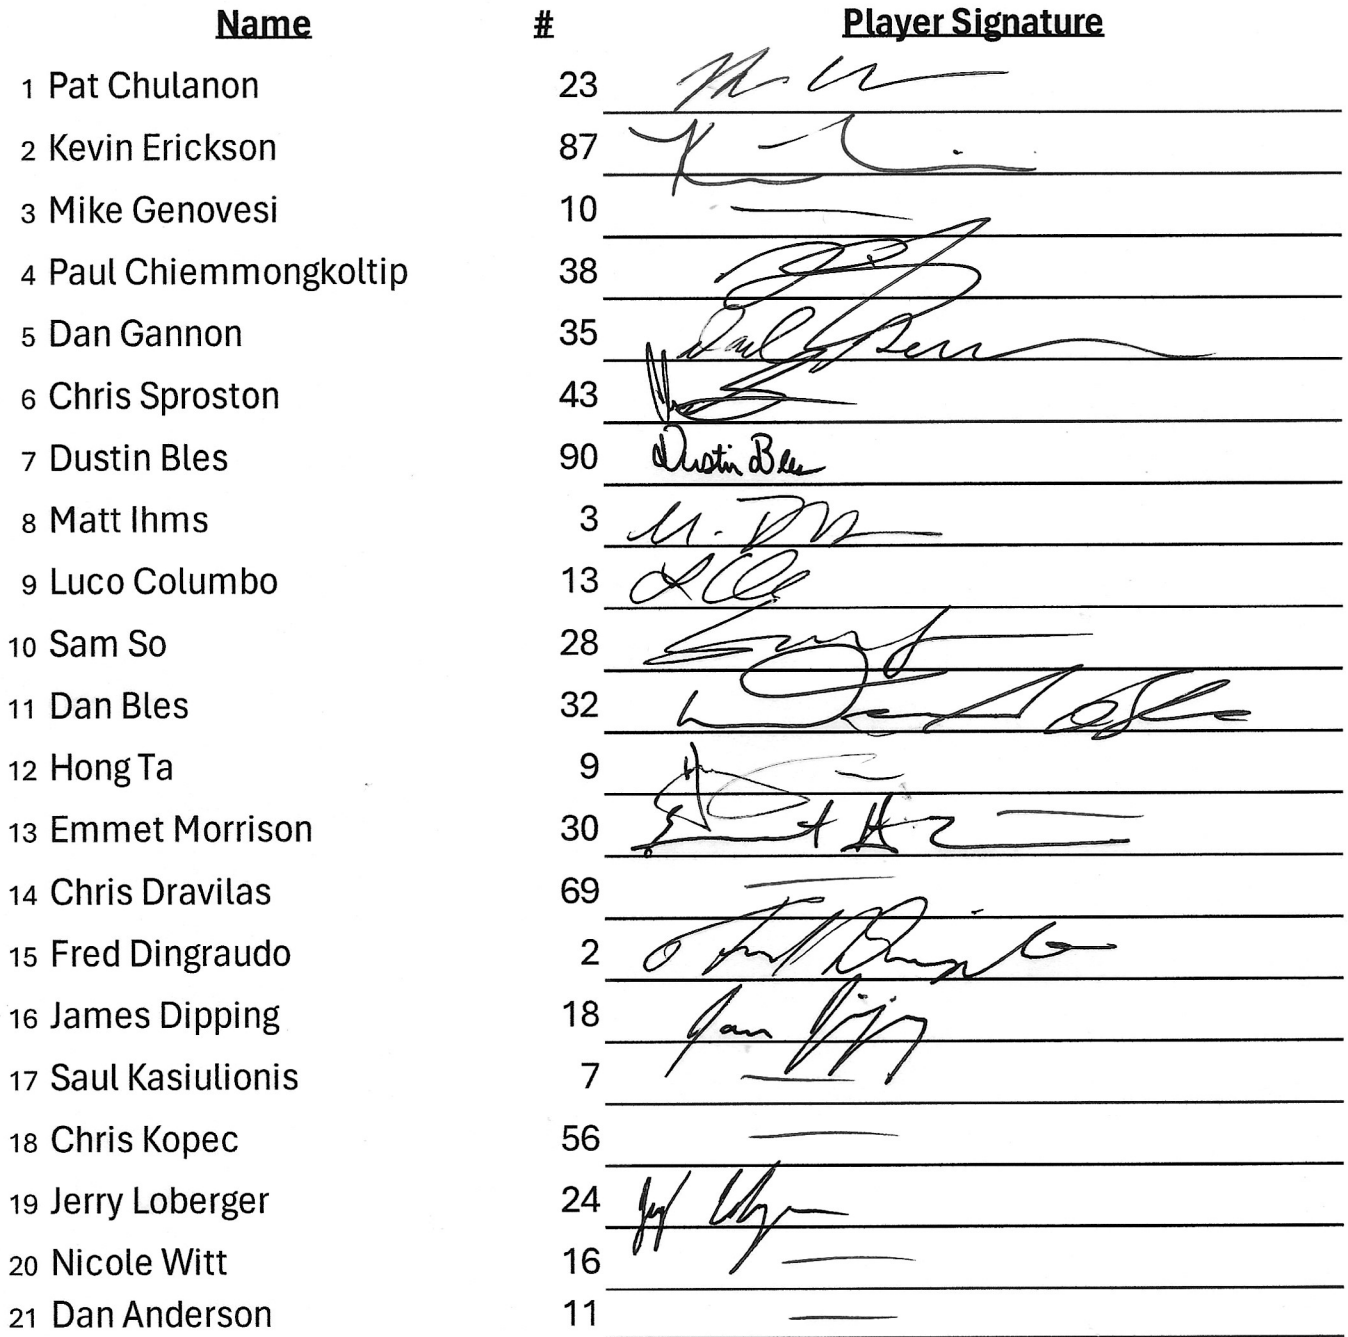 Name # Player Signature
1 Pat Chulanon 23
2 Kevin Erickson 87
3 Mike Genovesi 10 —
4 Paul Chiemmongkoltip 38
5 Dan Gannon 35
6 Chris Sproston 43
7 Dustin Bles 90 Dustin Bles
8 Matt Ihms 3
9 Luco Columbo 13
10 Sam So 28
11 Dan Bles 32
12 Hong Ta 9
13 Emmet Morrison 30
14 Chris Dravilas 69 —
15 Fred Dingraudo 2
16 James Dipping 18
17 Saul Kasiulionis 7 —
18 Chris Kopec 56 —
19 Jerry Loberger 24
20 Nicole Witt 16 —
21 Dan Anderson 11 —